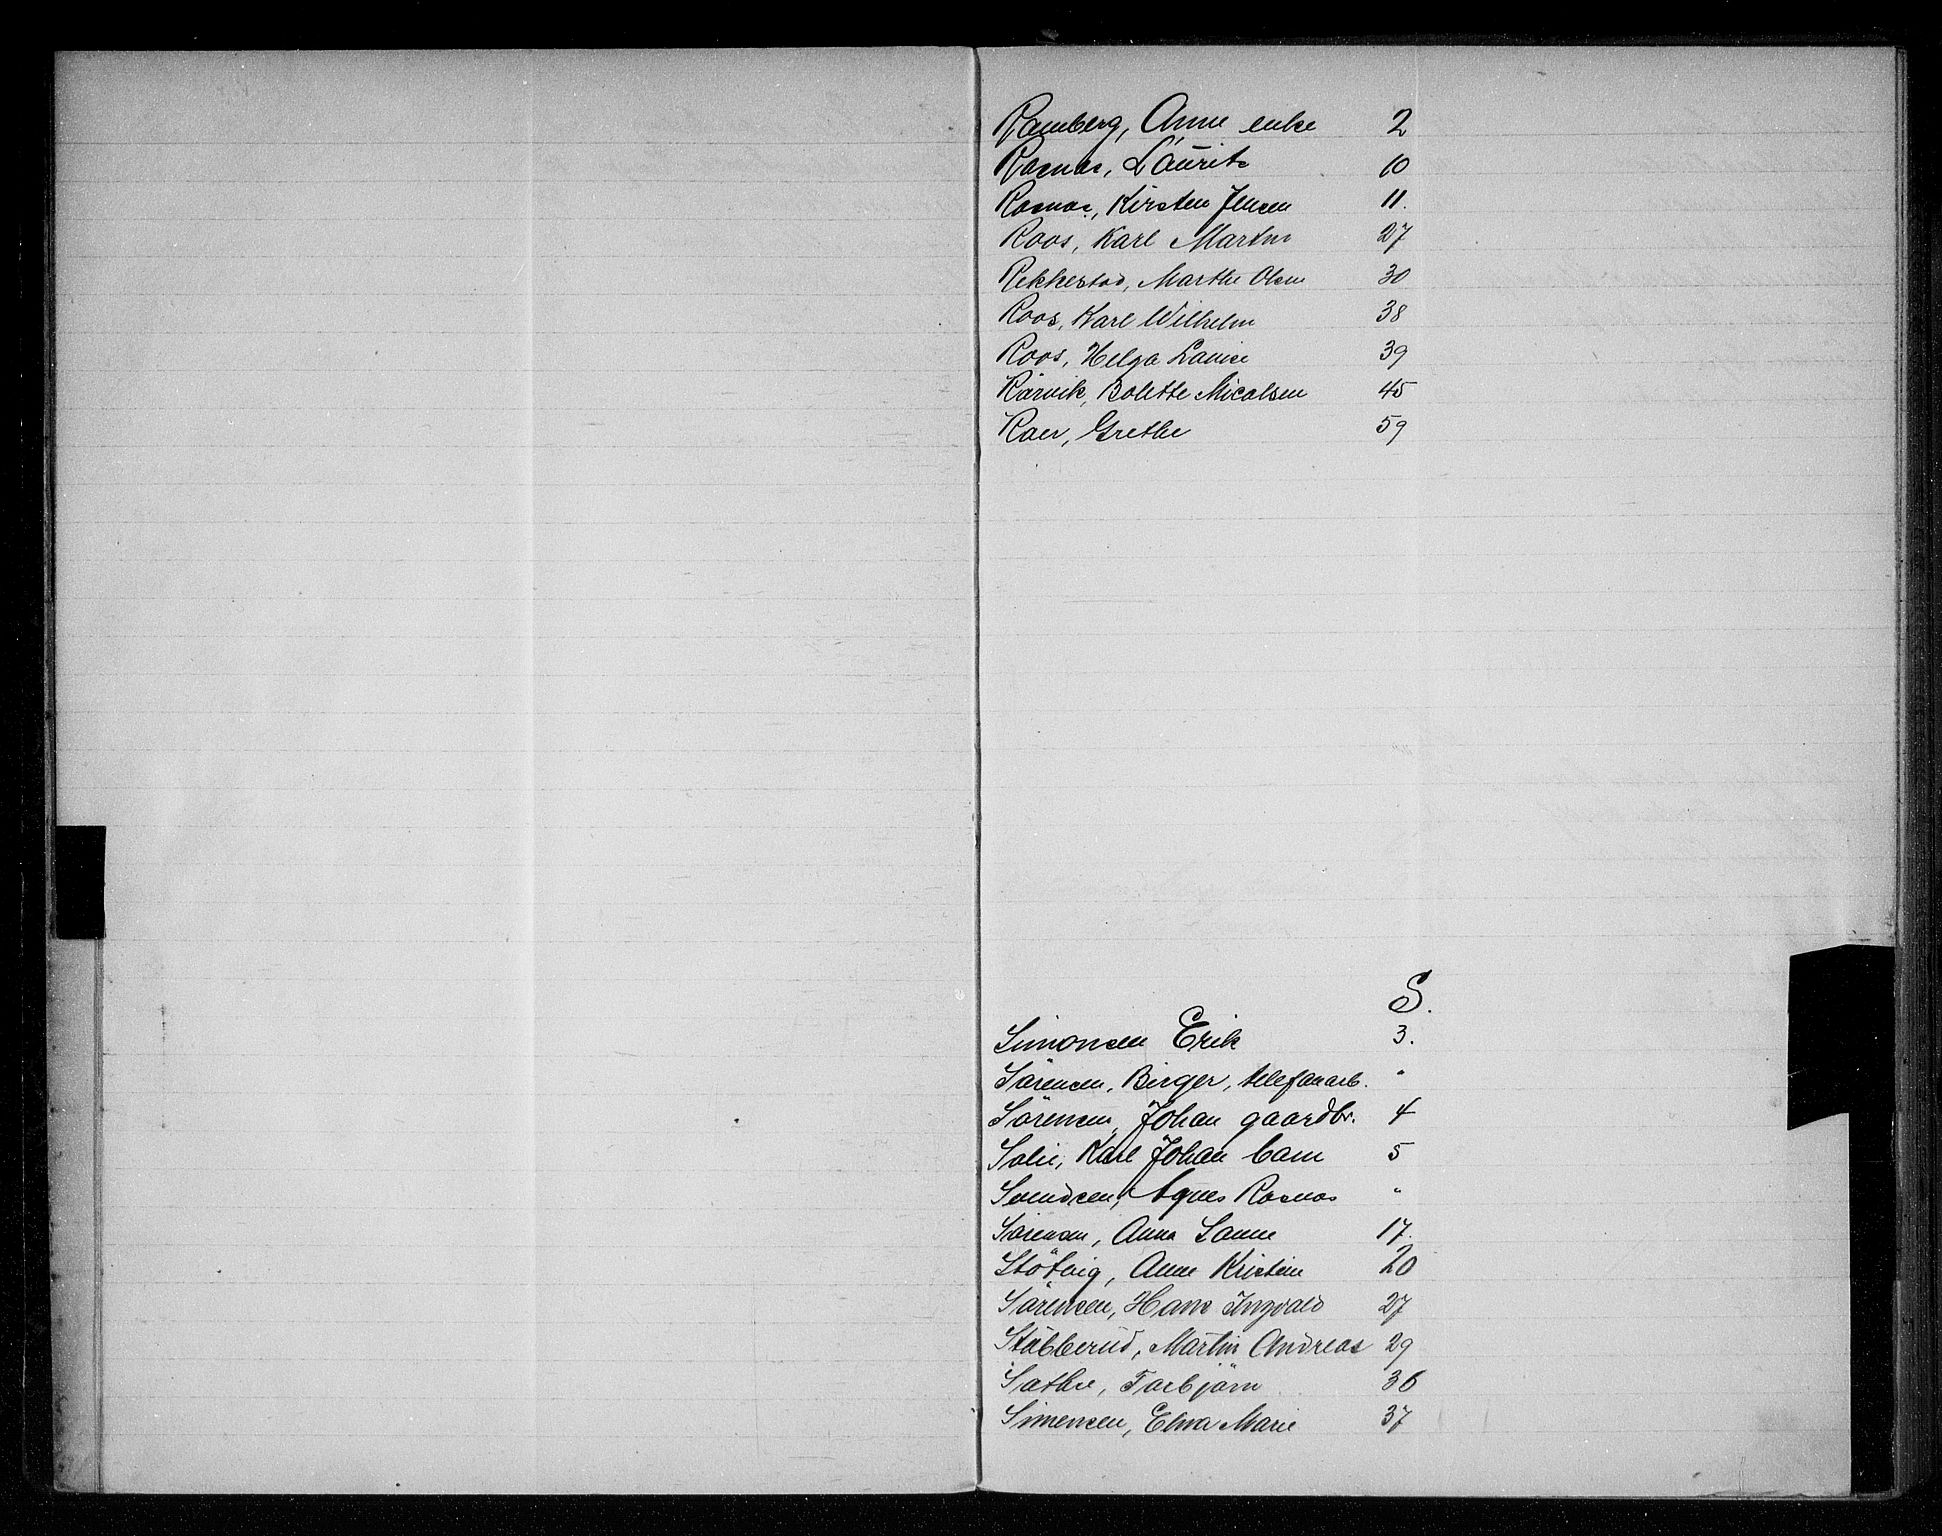 Ramberg, Anne enke 2
Rasnas, Laurits 10
Rasnas, Kirsten Jensen 11.
Roos, Karl Martin 27
Rekkestad, Marthe Olsen 30
Roos, Karl Wilhelm 38
Roos, Helga Lauise 39
Rörvik, Bolette Micalsen 45
Roer, Grethe 59
S.
Simonsen Erik 3.
Sörensen, Birger, telefonarb. "
Sörensen, Johan gaardbr. 4
Solie, Karl Johan barn 5
Svendsen, Agnes Rasnas "
Sörensen, Anna Sanne 17.
Stötvig, Anne Kristine 20
Sörensen, Hans Ingvald 27
Stubberud, Martin Andreas 29
Sathre, Torbjörn 36
Simensen, Elna Marie 37